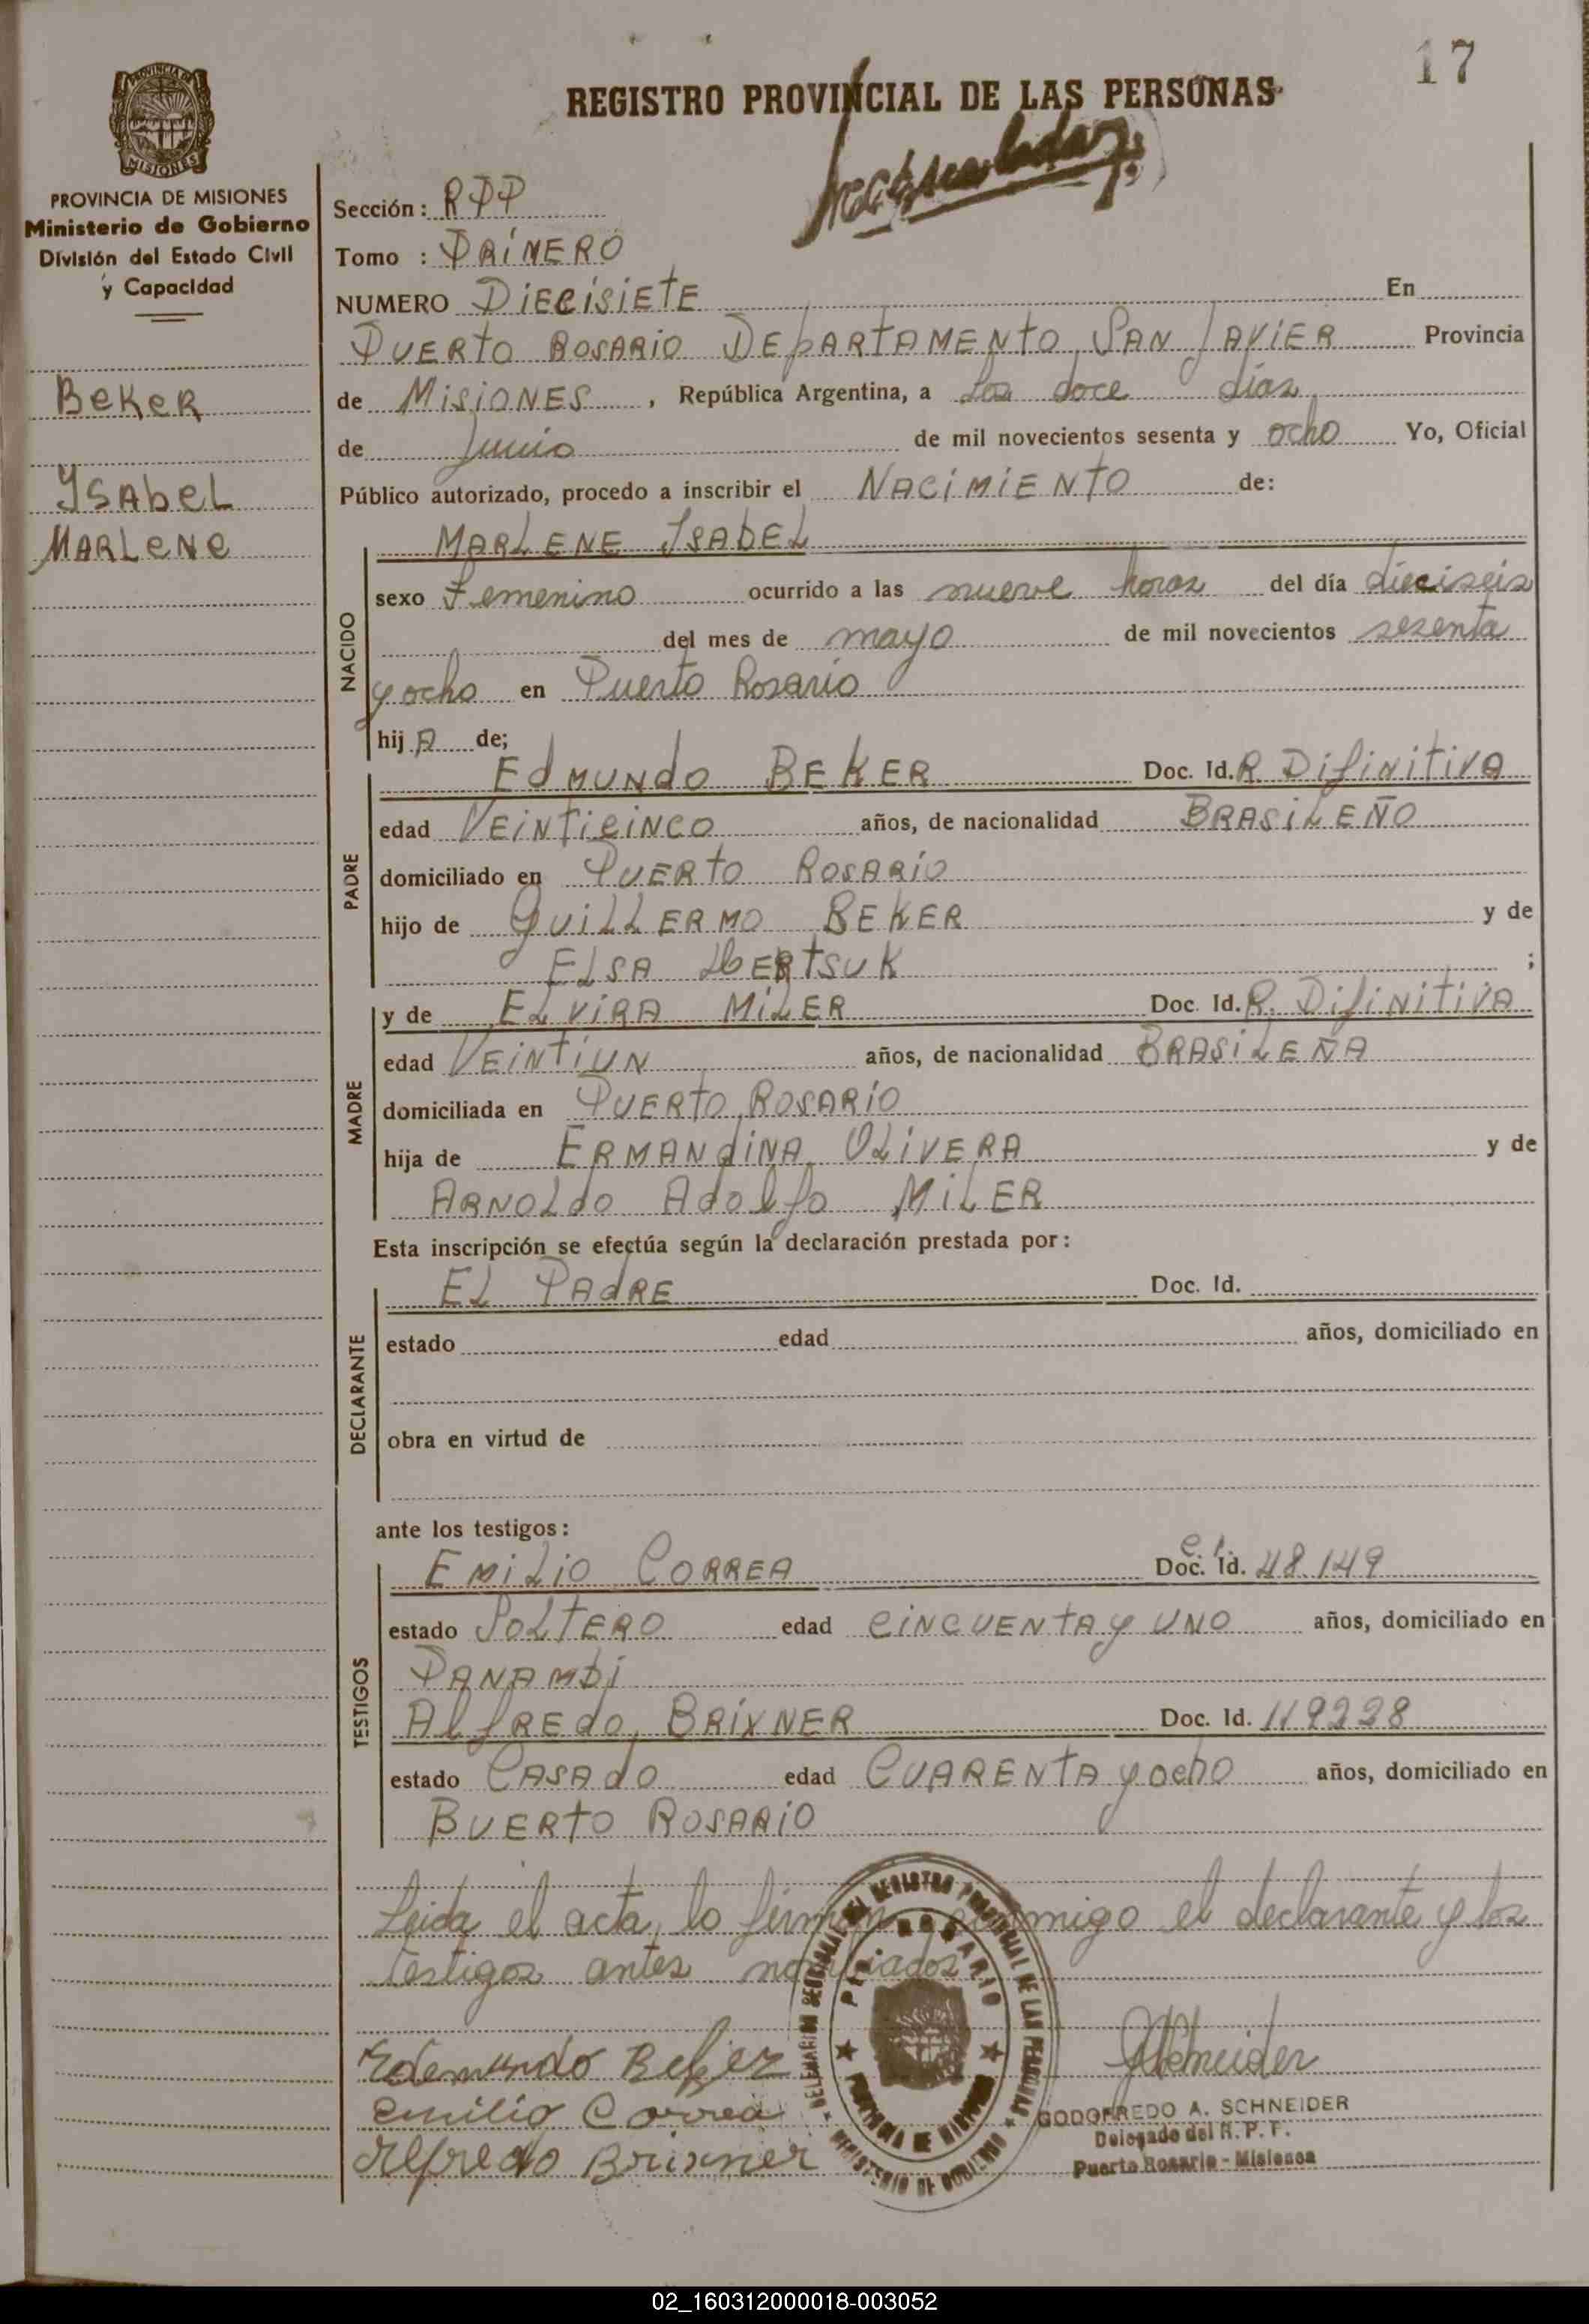 17
REGISTRO PROVINCIAL DE LAS PERSONAS
PROVINCIA DE
MISIONES
PROVINCIA DE MISIONES
Ministerio de Gobierno
División del Estado Civil
y Capacidad
Beker
Ysabel
Marlene
Sección: RPP
Tomo : PRIMERO
NUMERO DIECISIETE En
PUERTO ROSARIO DEPARTAMENTO SAN JAVIER Provincia
de MISIONES , República Argentina, a los doce dias
de Junio de mil novecientos sesenta y ocho Yo, Oficial
Público autorizado, procedo a inscribir el NACIMIENTO de:
MARLENE ISABEL
NACIDO
sexo Femenino ocurrido a las nueve horas del día dieciseis
del mes de mayo de mil novecientos sesenta
y ocho en Puerto Rosario
hij A de;
PADRE
EdMUNdo BEKER Doc. Id. R. DifiNitiVA
edad VEINTICINCO años, de nacionalidad BRASILEÑO
domiciliado en PUERTO ROSARIO
hijo de GUILLERMO BEKER y de
ELSA ;
MADRE
y de ELVIRA MILER Doc. Id. R. DifiNitiVA
edad VEINTIUN años, de nacionalidad BRASILEÑA
domiciliada en PUERTO ROSARIO
hija de ERMANdINA OLIVERA y de
ARNOLdo AdolfO MILER
Esta inscripción se efectúa según la declaración prestada por:
DECLARANTE
EL PAdRE Doc. Id.
estado edad años, domiciliado en
obra en virtud de
ante los testigos:
TESTIGOS
EMILIO CORREA Doc. Id. C.I. 48.149
estado SOLTERO edad CINCUENTA y UNO años, domiciliado en
PANAMBI
AlfREdo BRIXNER Doc. Id. 119228
estado CASAdo edad CUARENTA y ocho años, domiciliado en
BUERTO ROSARIO
Leida el acta, lo firman conmigo el declarante y los
testigos antes
Edemundo Beker
Emilio Correa
Alfredo Brixner
PTO. ROSARIO
PROVINCIA DE MISIONES
MINISTERIO DE GOBIERNO
Schneider
GODOFREDO A. SCHNEIDER
Delegado del R. P. P.
Puerto Rosario - Misiones
02_160312000018-003052